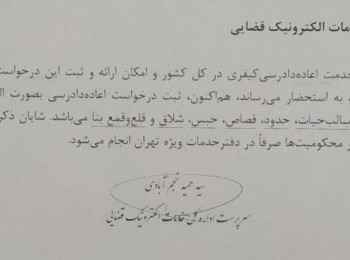 مات الکترونیک قضایی
خدمت اعاده‌دادرسی‌کیفری در کل کشور و امکان ارائه و ثبت این درخواست
، به استحضار می‌رساند، هم‌اکنون، ثبت درخواست اعاده‌دادرسی بصورت ال
سالب‌حیات، حدود، قصاص، حبس، شلاق و قلع‌وقمع بنا می‌باشد. شایان ذکر
ر محکومیت‌ها صرفاً در دفترخدمات ویژه تهران انجام می‌شود.
سید حمید نجم آبادی
سرپرست اداره کل خدمات الکترونیک قضایی